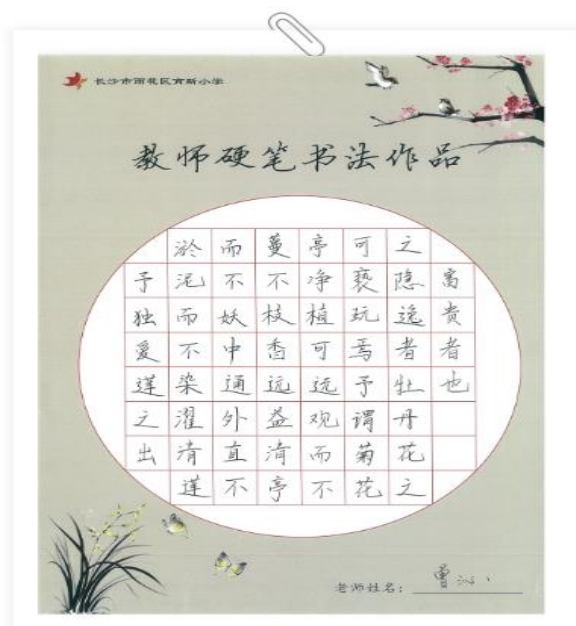 长沙市雨花区育新小学
教师硬笔书法作品
予独爱莲之出
淤泥而不染濯清莲
而不妖中通外直不
蔓不枝香远益清亭
亭净植可远观而不
可亵玩焉予谓菊花
之隐逸者牡丹花之
富贵者也
老师姓名：曹